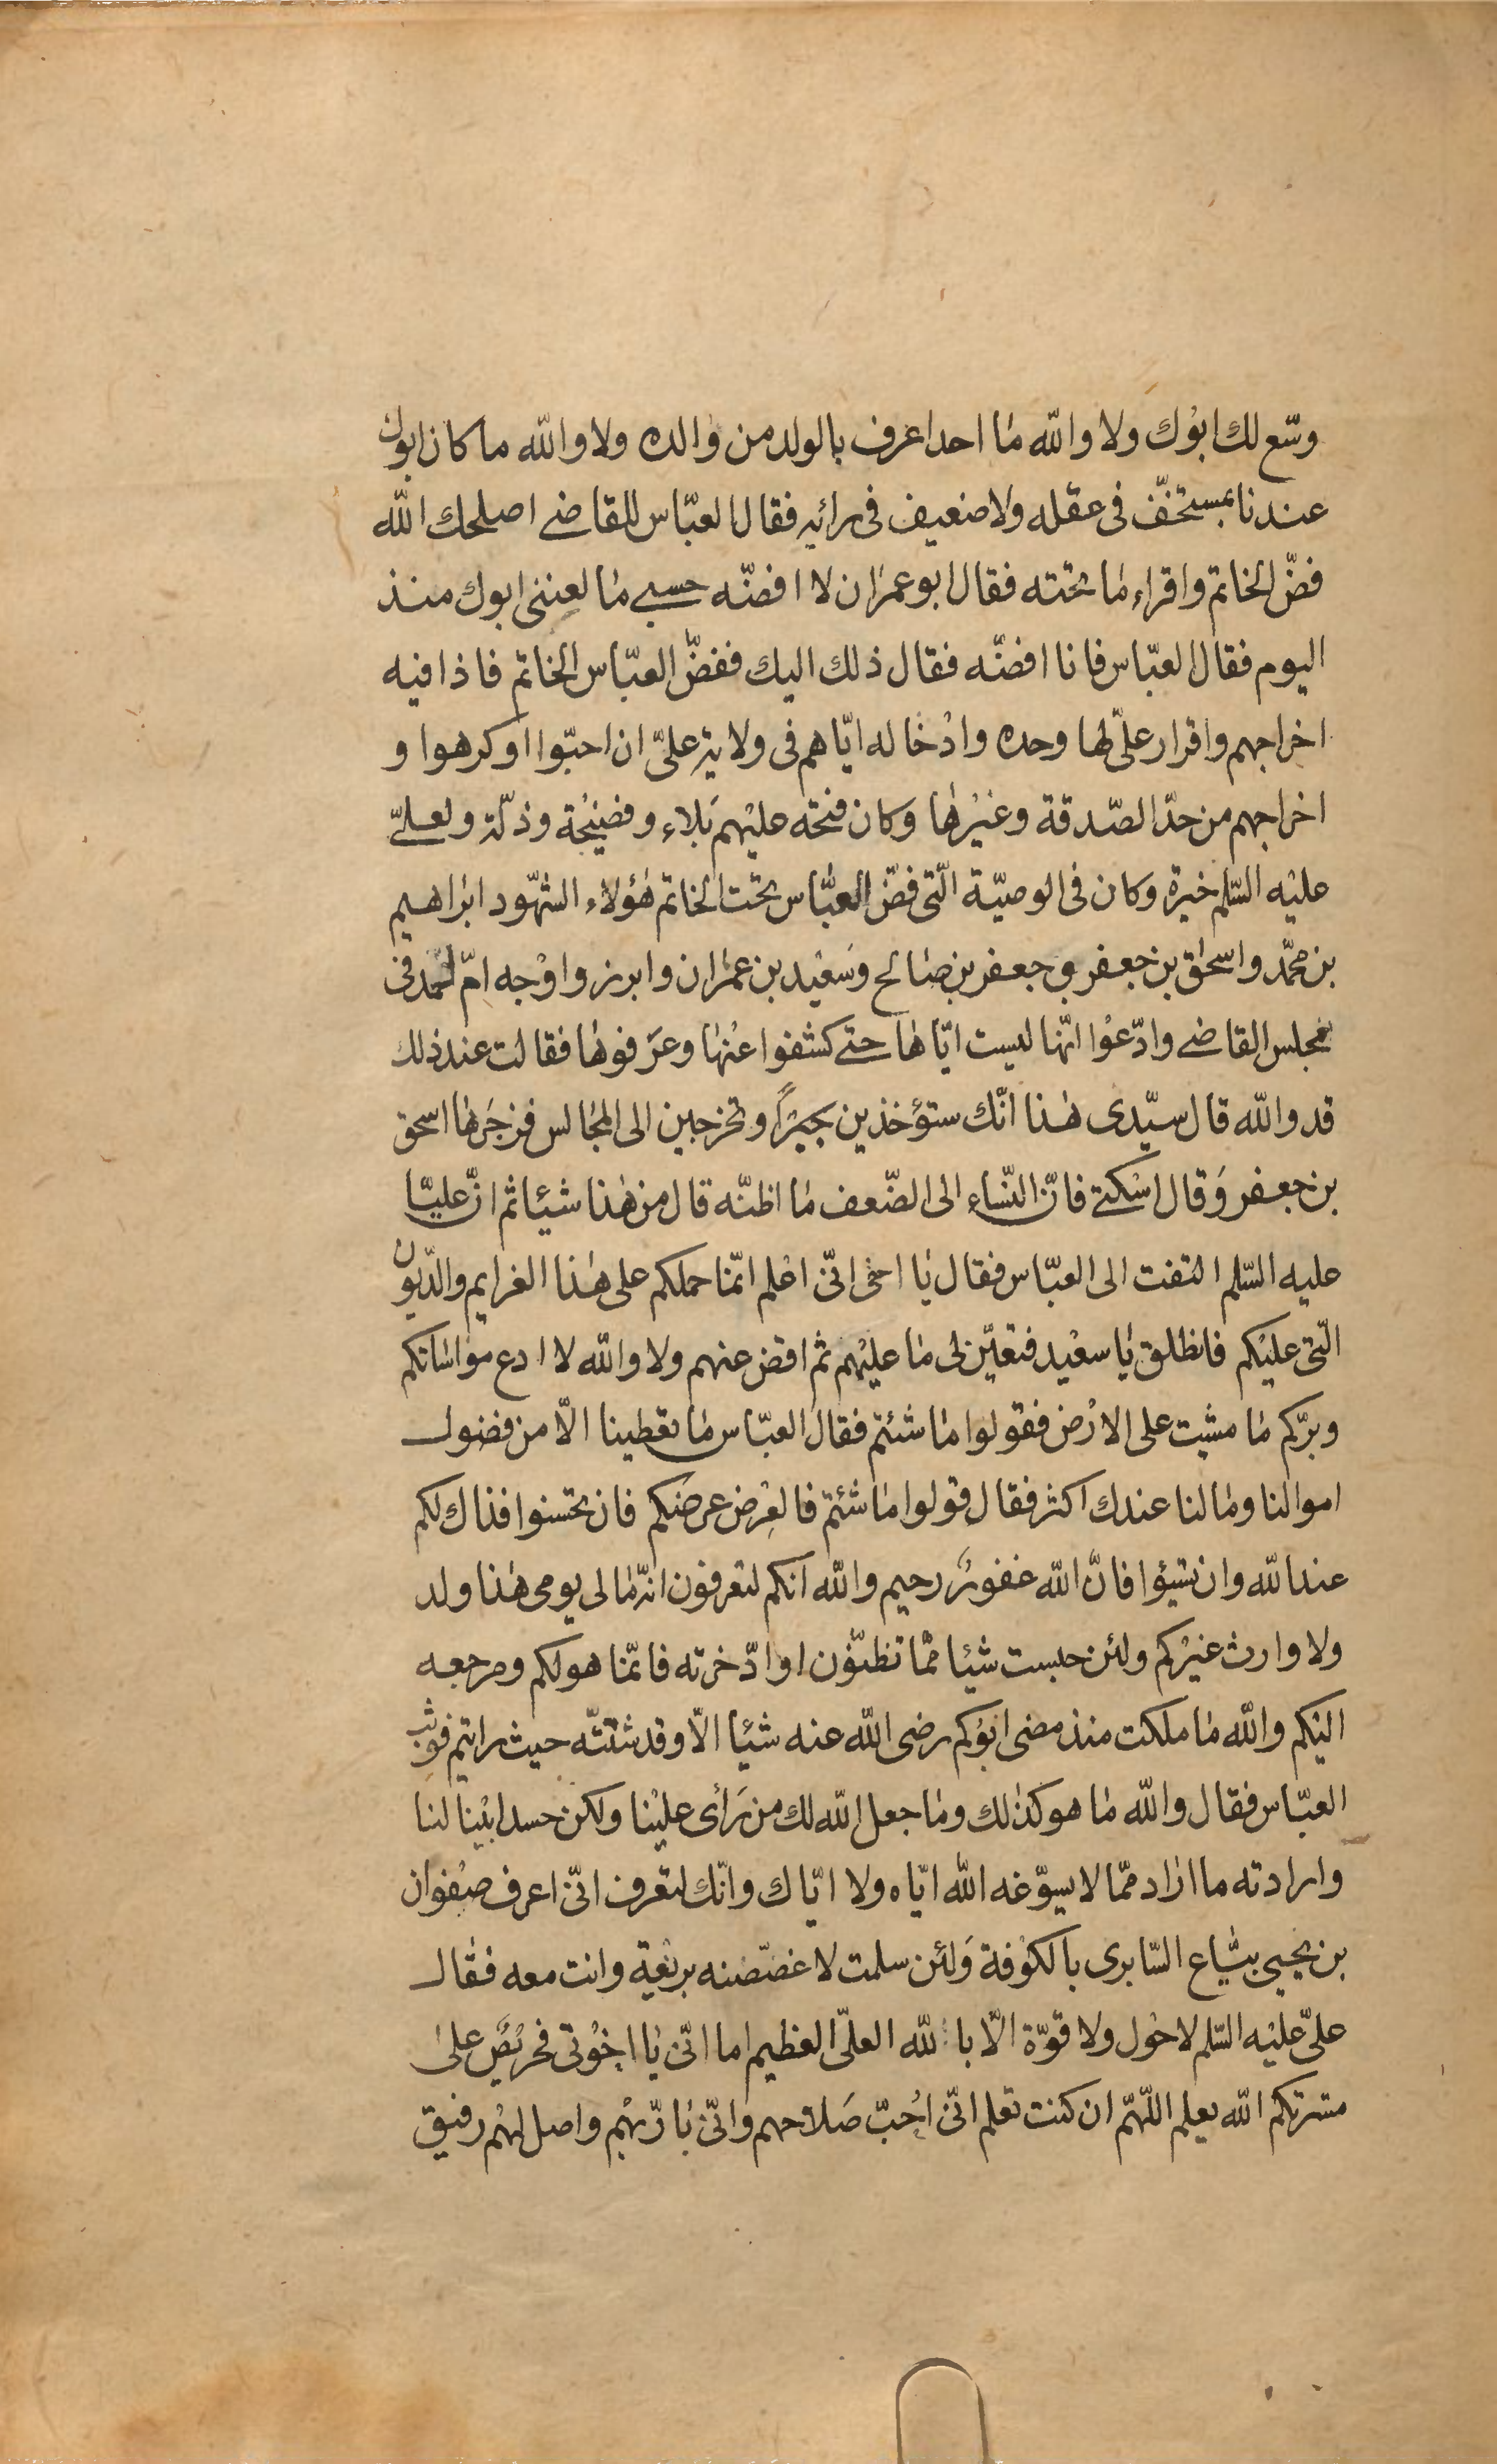 وسّع لك ابوك ولا والله ما احد اعرف بالولد من والده ولا والله ما كان ابوك
عندنا بمستخفّ فى عقله ولا ضعيف فى رائيه فقال العبّاس للقاضى اصلحك الله
فضّ الخاتم واقراء ما تحته فقال ابو عمران لا افضّه حسبى ما لعننى ابوك منذ
اليوم فقال العبّاس فانا افضّه فقال ذلك اليك ففضّ العبّاس الخاتم فاذا فيه
اخراجهم واقرار علىّ لها وحده وادخاله ايّاهم فى ولاية علىّ ان احبّوا او كرهوا و
اخراجهم من حدّ الصّدقة وغيرها وكان فتحه عليهم بلاء وفضيحة وذلّة ولعلىّ
عليه السّلم خيرة وكان فى الوصيّة الّتى فضّ العبّاس تحت الخاتم هؤلاء الشهّود ابراهيم
بن محمّد واسحق بن جعفر و جعفر بن صالح وسعيد بن عمران وابرزوا وجه امّ احمد فى
مجلس القاضى وادّعوا انّها ليست ايّاها حتى كشفوا عنها وعرفوها فقالت عند ذلك
قد والله قال سيّدى هذا انّك ستؤخذين جبرًا وتخرجين الى المجالس فزجرها اسحق
بن جعفر وقال اسكتى فانّ النّساء الى الضّعف ما اظنّه قال من هذا شيئا ثم انّ عليّا
عليه السّلم التفت الى العبّاس فقال يا اخى انّى اعلم انّما حملكم على هذا الغرايم والدّيون
الّتى عليكم فانطلق يا سعيد فتعيّن لى ما عليهم ثم اقض عنهم ولا والله لا ادع مواساتكم
وبرّكم ما مشيت على الارض فقولوا ما شئتم فقال العبّاس ما تعطينا الّا من فضول
اموالنا وما لنا عندك اكثر فقال قولوا ما شئتم فالعرض عرضكم فان تحسنوا فذاك لكم
عند الله وان تسيؤا فانّ الله غفورٌ رحيم والله انكم لتعرفون انّه ما لى يومى هذا ولد
ولا وارث غيركم ولئن حبست شيئا ممّا تظنّون او ادّخرته فانّما هو لكم ومرجعه
اليكم والله ما ملكت منذ مضى ابوكم رضى الله عنه شيئا الّا وقد شتّته حيث رايتم فوثب
العبّاس فقال والله ما هو كذلك وما جعل الله لك من رأى علينا ولكن حسد ابينا لنا
وارادته ما اراد ممّا لا يسوّغه الله ايّاه ولا ايّاك وانّك لتعرف انّى اعرف صفوان
بن يحيى بيّاع السّابرى بالكوفة ولئن سلمت لاغصّصنه بريقه وانت معه فقال
علىّ عليه السّلم لا حول ولا قوّة الّا بالله العلىّ العظيم اما انّى يا اخوتى فحريصٌ على
مسرتكم الله يعلم اللّهمّ ان كنت تعلم انّى احبّ صلاحهم وانّى بارّ بهم واصل لهم رفيق